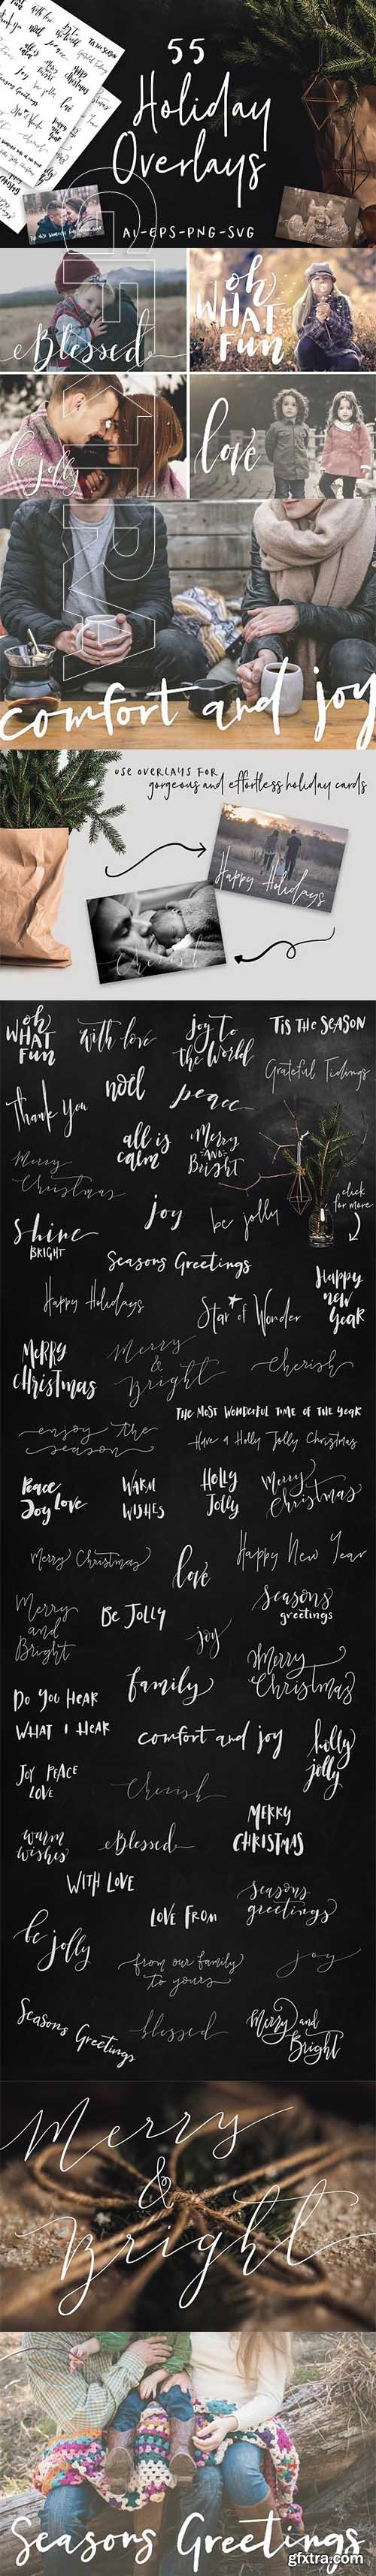 55
Holiday
Overlays
AI-EPS-PNG-SVG
GFXTRA
Blessed
oh
WHAT
Fun
be jolly
love
comfort and joy
USE OVERLAYS FOR
gorgeous and effortless holiday cards
Happy Holidays
Cherish
oh
WHAT
Fun
with love
joy to
the World
TIS THE SEASON
Grateful Tidings
Thank You
noël
peace
all is
calm
Merry
AND
Bright
Merry
Christmas
click
for more
joy
be jolly
Shine
BRIGHT
Seasons Greetings
Happy Holidays
Star of Wonder
Happy
new
year
Merry
Christmas
Merry
&
Bright
Cherish
THE MOST WONDERFUL TIME OF THE YEAR
enjoy the
season
Have a Holly Jolly Christmas
Peace
Joy Love
WARM
WISHES
HOLLY
Jolly
Merry
Christmas
Merry Christmas
love
Happy New Year
Merry
and
Bright
Be Jolly
joy
Seasons
greetings
Do You HEAR
WHAT I HEAR
family
Merry
Christmas
comfort and joy
holly
jolly
JOY PEACE
LOVE
Cherish
MERRY
CHRISTMAS
warm
wishes
Blessed
WITH LOVE
LOVE FROM
Seasons
greetings
be jolly
from our family
to yours
joy
Seasons Greetings
blessed
Merry and
Bright
Merry
&
Bright
Seasons Greetings
gfxtra.com